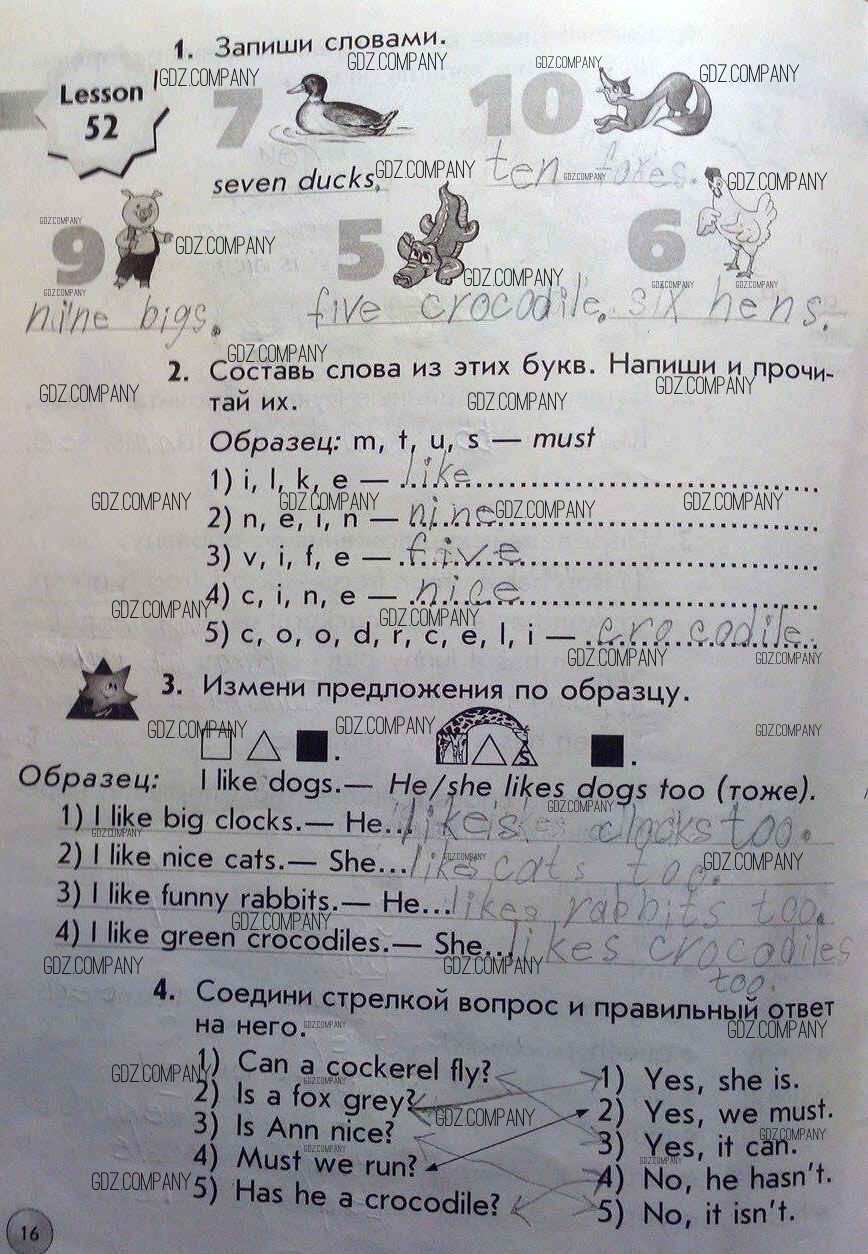 1. Запиши словами.
Lesson
52
7 10
seven ducks, ten foxes.
9 5 6
nine bigs. five crocodile. six hens.
2. Составь слова из этих букв. Напиши и прочи-
тай их.
Образец: m, t, u, s — must
1) i, l, k, e — like
2) n, e, i, n — nine
3) v, i, f, e — five
4) c, i, n, e — nice
5) c, o, o, d, r, c, e, l, i — crocodile.
3. Измени предложения по образцу.
Образец: I like dogs.— He/she likes dogs too (тоже).
1) I like big clocks.— He... likes clocks too.
2) I like nice cats.— She... likes cats too.
3) I like funny rabbits.— He... likes rabbits too.
4) I like green crocodiles.— She... likes crocodiles
too.
4. Соедини стрелкой вопрос и правильный ответ
на него.
1) Can a cockerel fly? 1) Yes, she is.
2) Is a fox grey? 2) Yes, we must.
3) Is Ann nice? 3) Yes, it can.
4) Must we run? 4) No, he hasn't.
5) Has he a crocodile? 5) No, it isn't.
16
GDZ.COMPANY